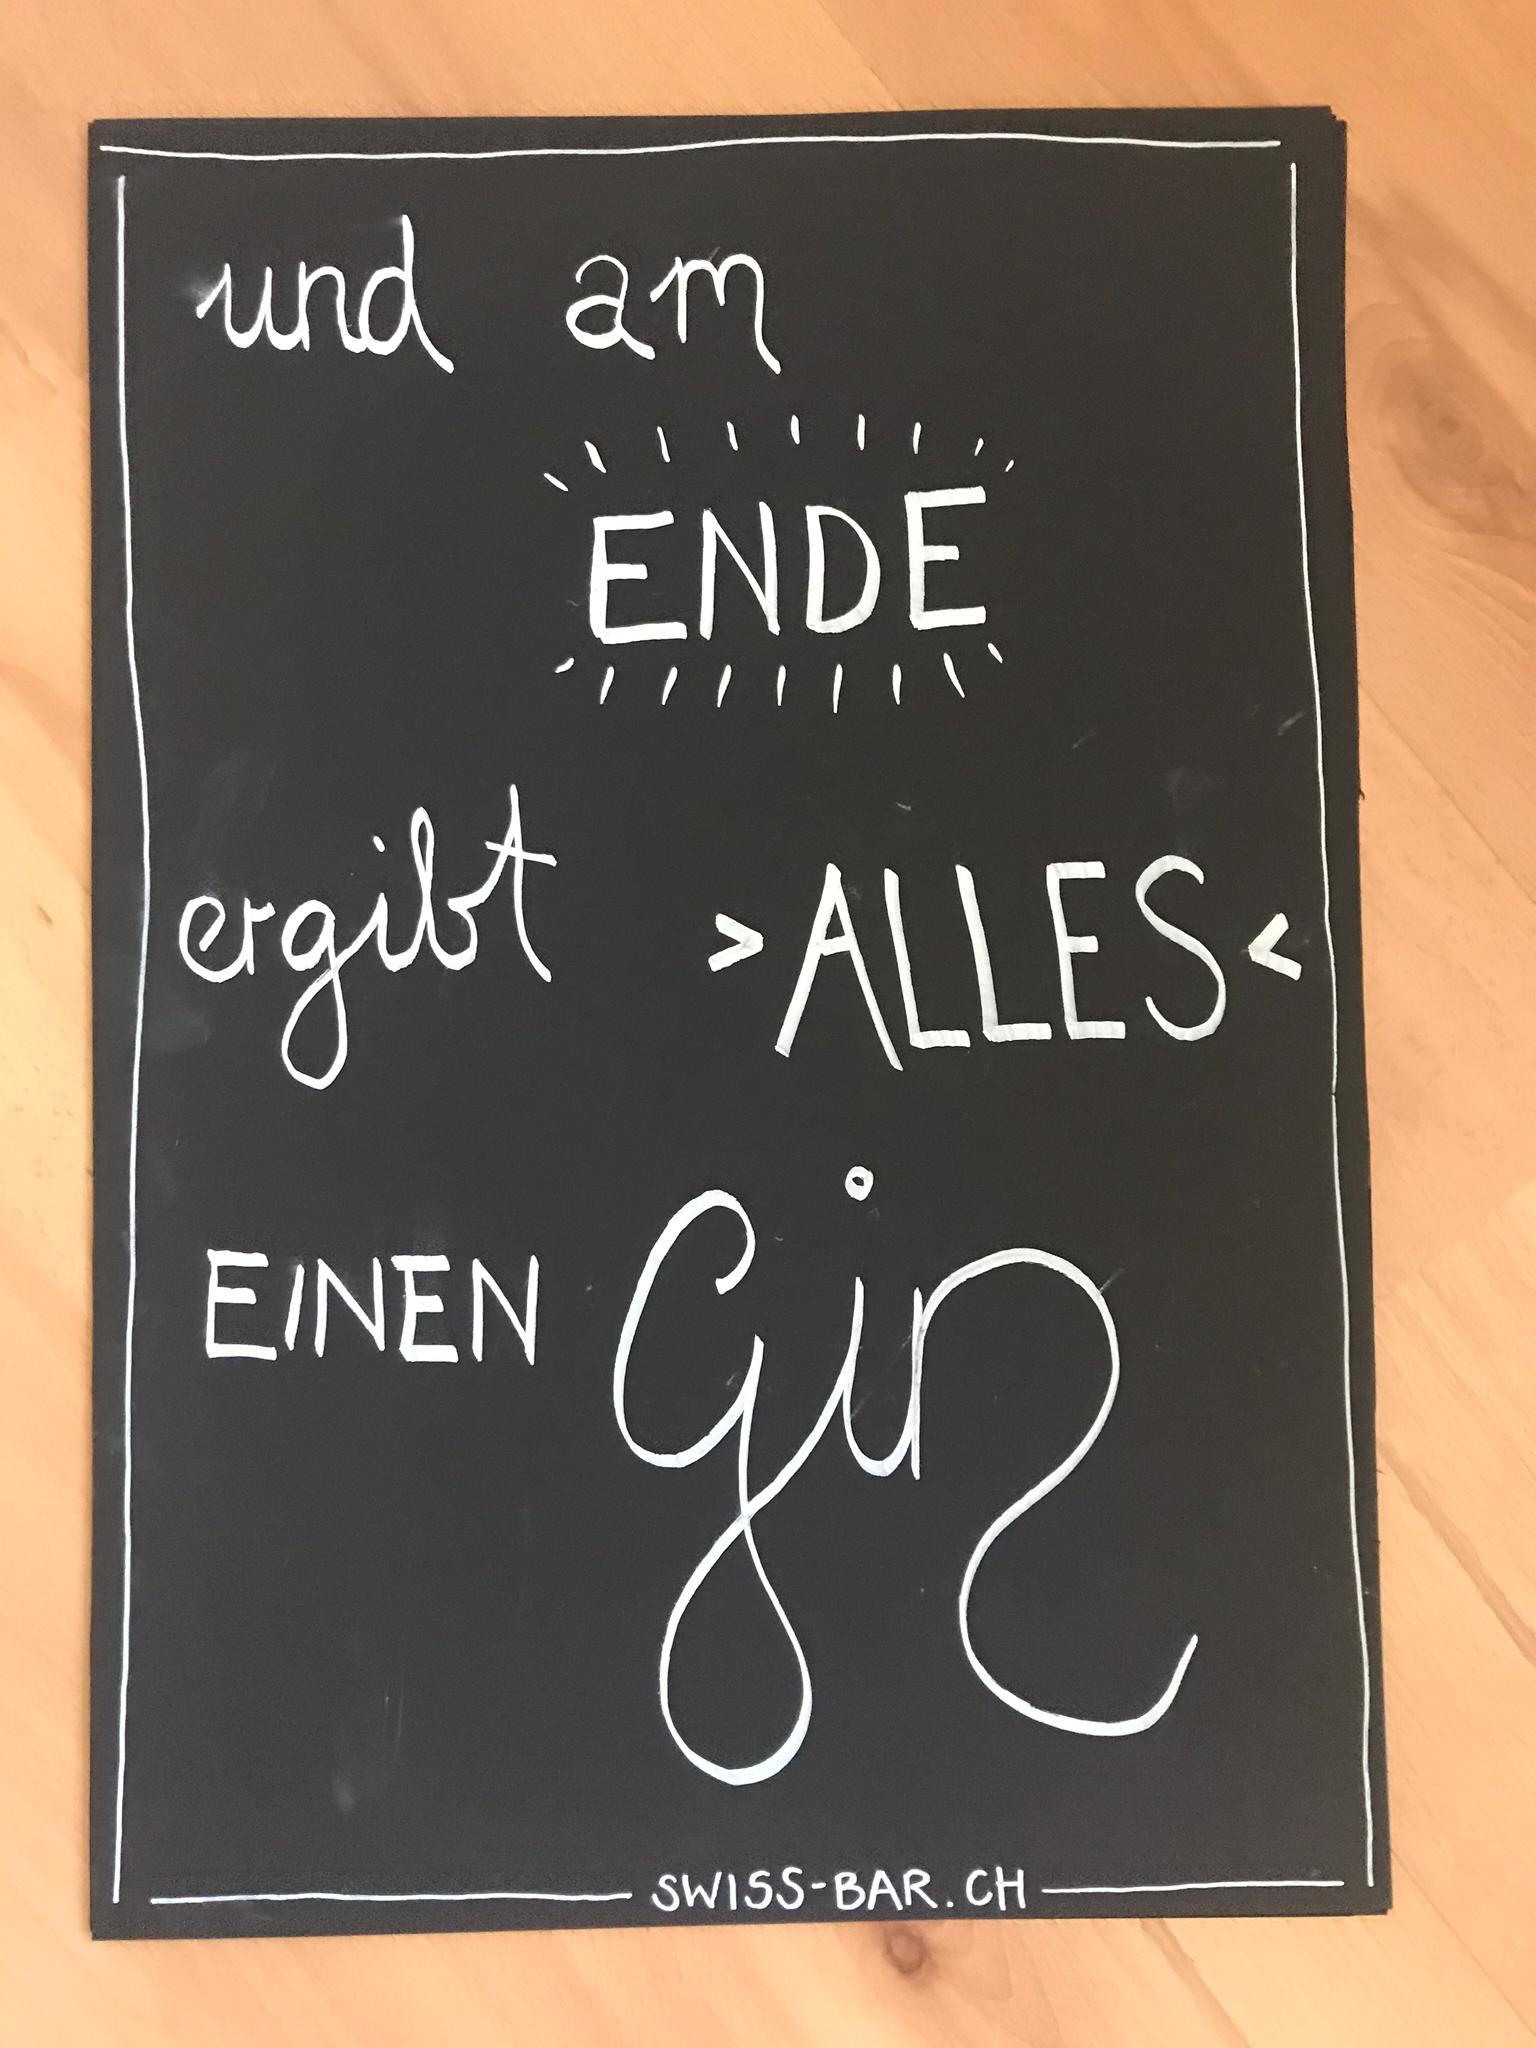 und am
ENDE
ergibt >ALLES<
EINEN Gin
SWISS-BAR.CH